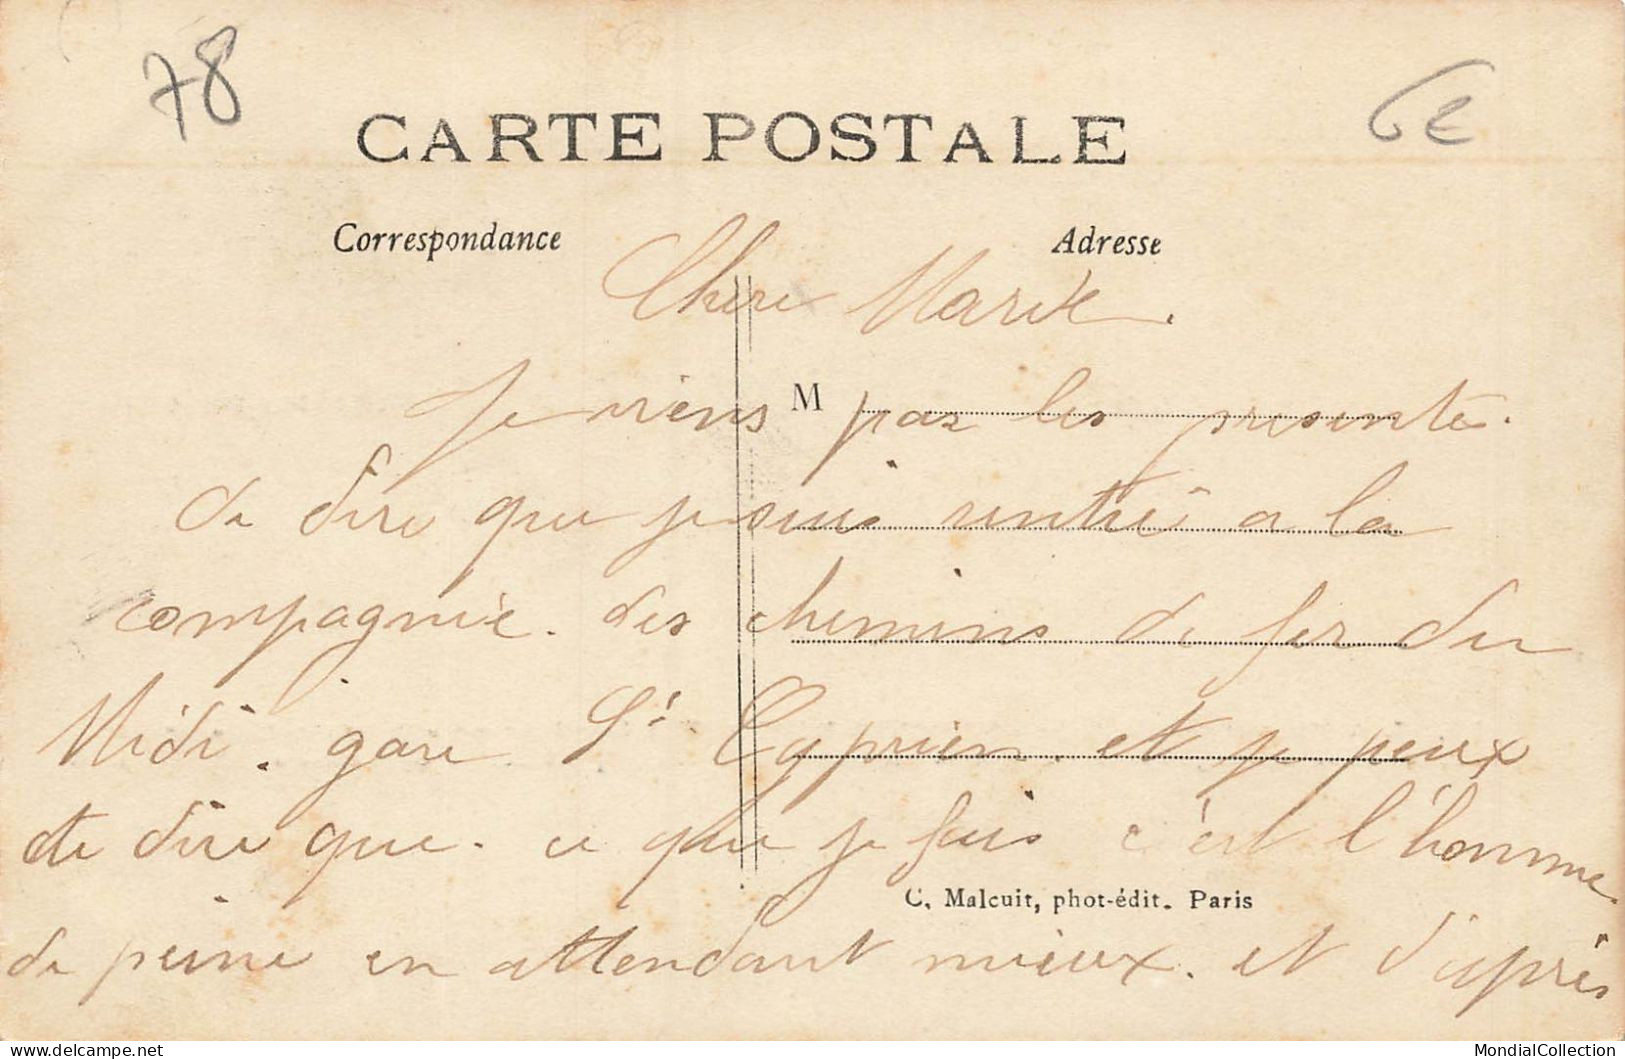 78
6€
CARTE POSTALE
Correspondance
Adresse
Chère Marie.
Je viens par les presente.
de dire que je suis rentré a la
compagnie. des chemins de fer du
Midi. gare St Cyprien. et je peux
te dire que. ce que je fais c'est l'homme
de peine en attendant mieux. et d'après
M
C. Malcuit, phot-édit. Paris
MondialCollection